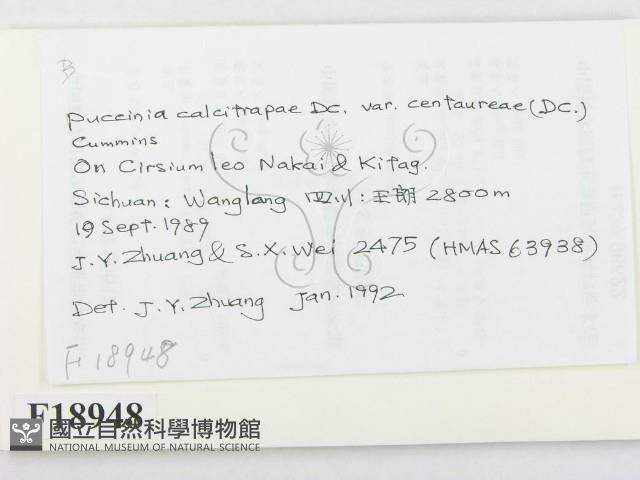 B
Puccinia calcitrapae DC. var. centaureae (DC.)
Cummins
On Cirsium leo Nakai & Kitag.
Sichuan: Wanglang 四川:王朗 2800m
19 Sept. 1989
J.Y. Zhuang & S.X. Wei 2475 (HMAS 63938)
Det. J.Y. Zhuang Jan. 1992
F18948
F18948
國立自然科學博物館
NATIONAL MUSEUM OF NATURAL SCIENCE